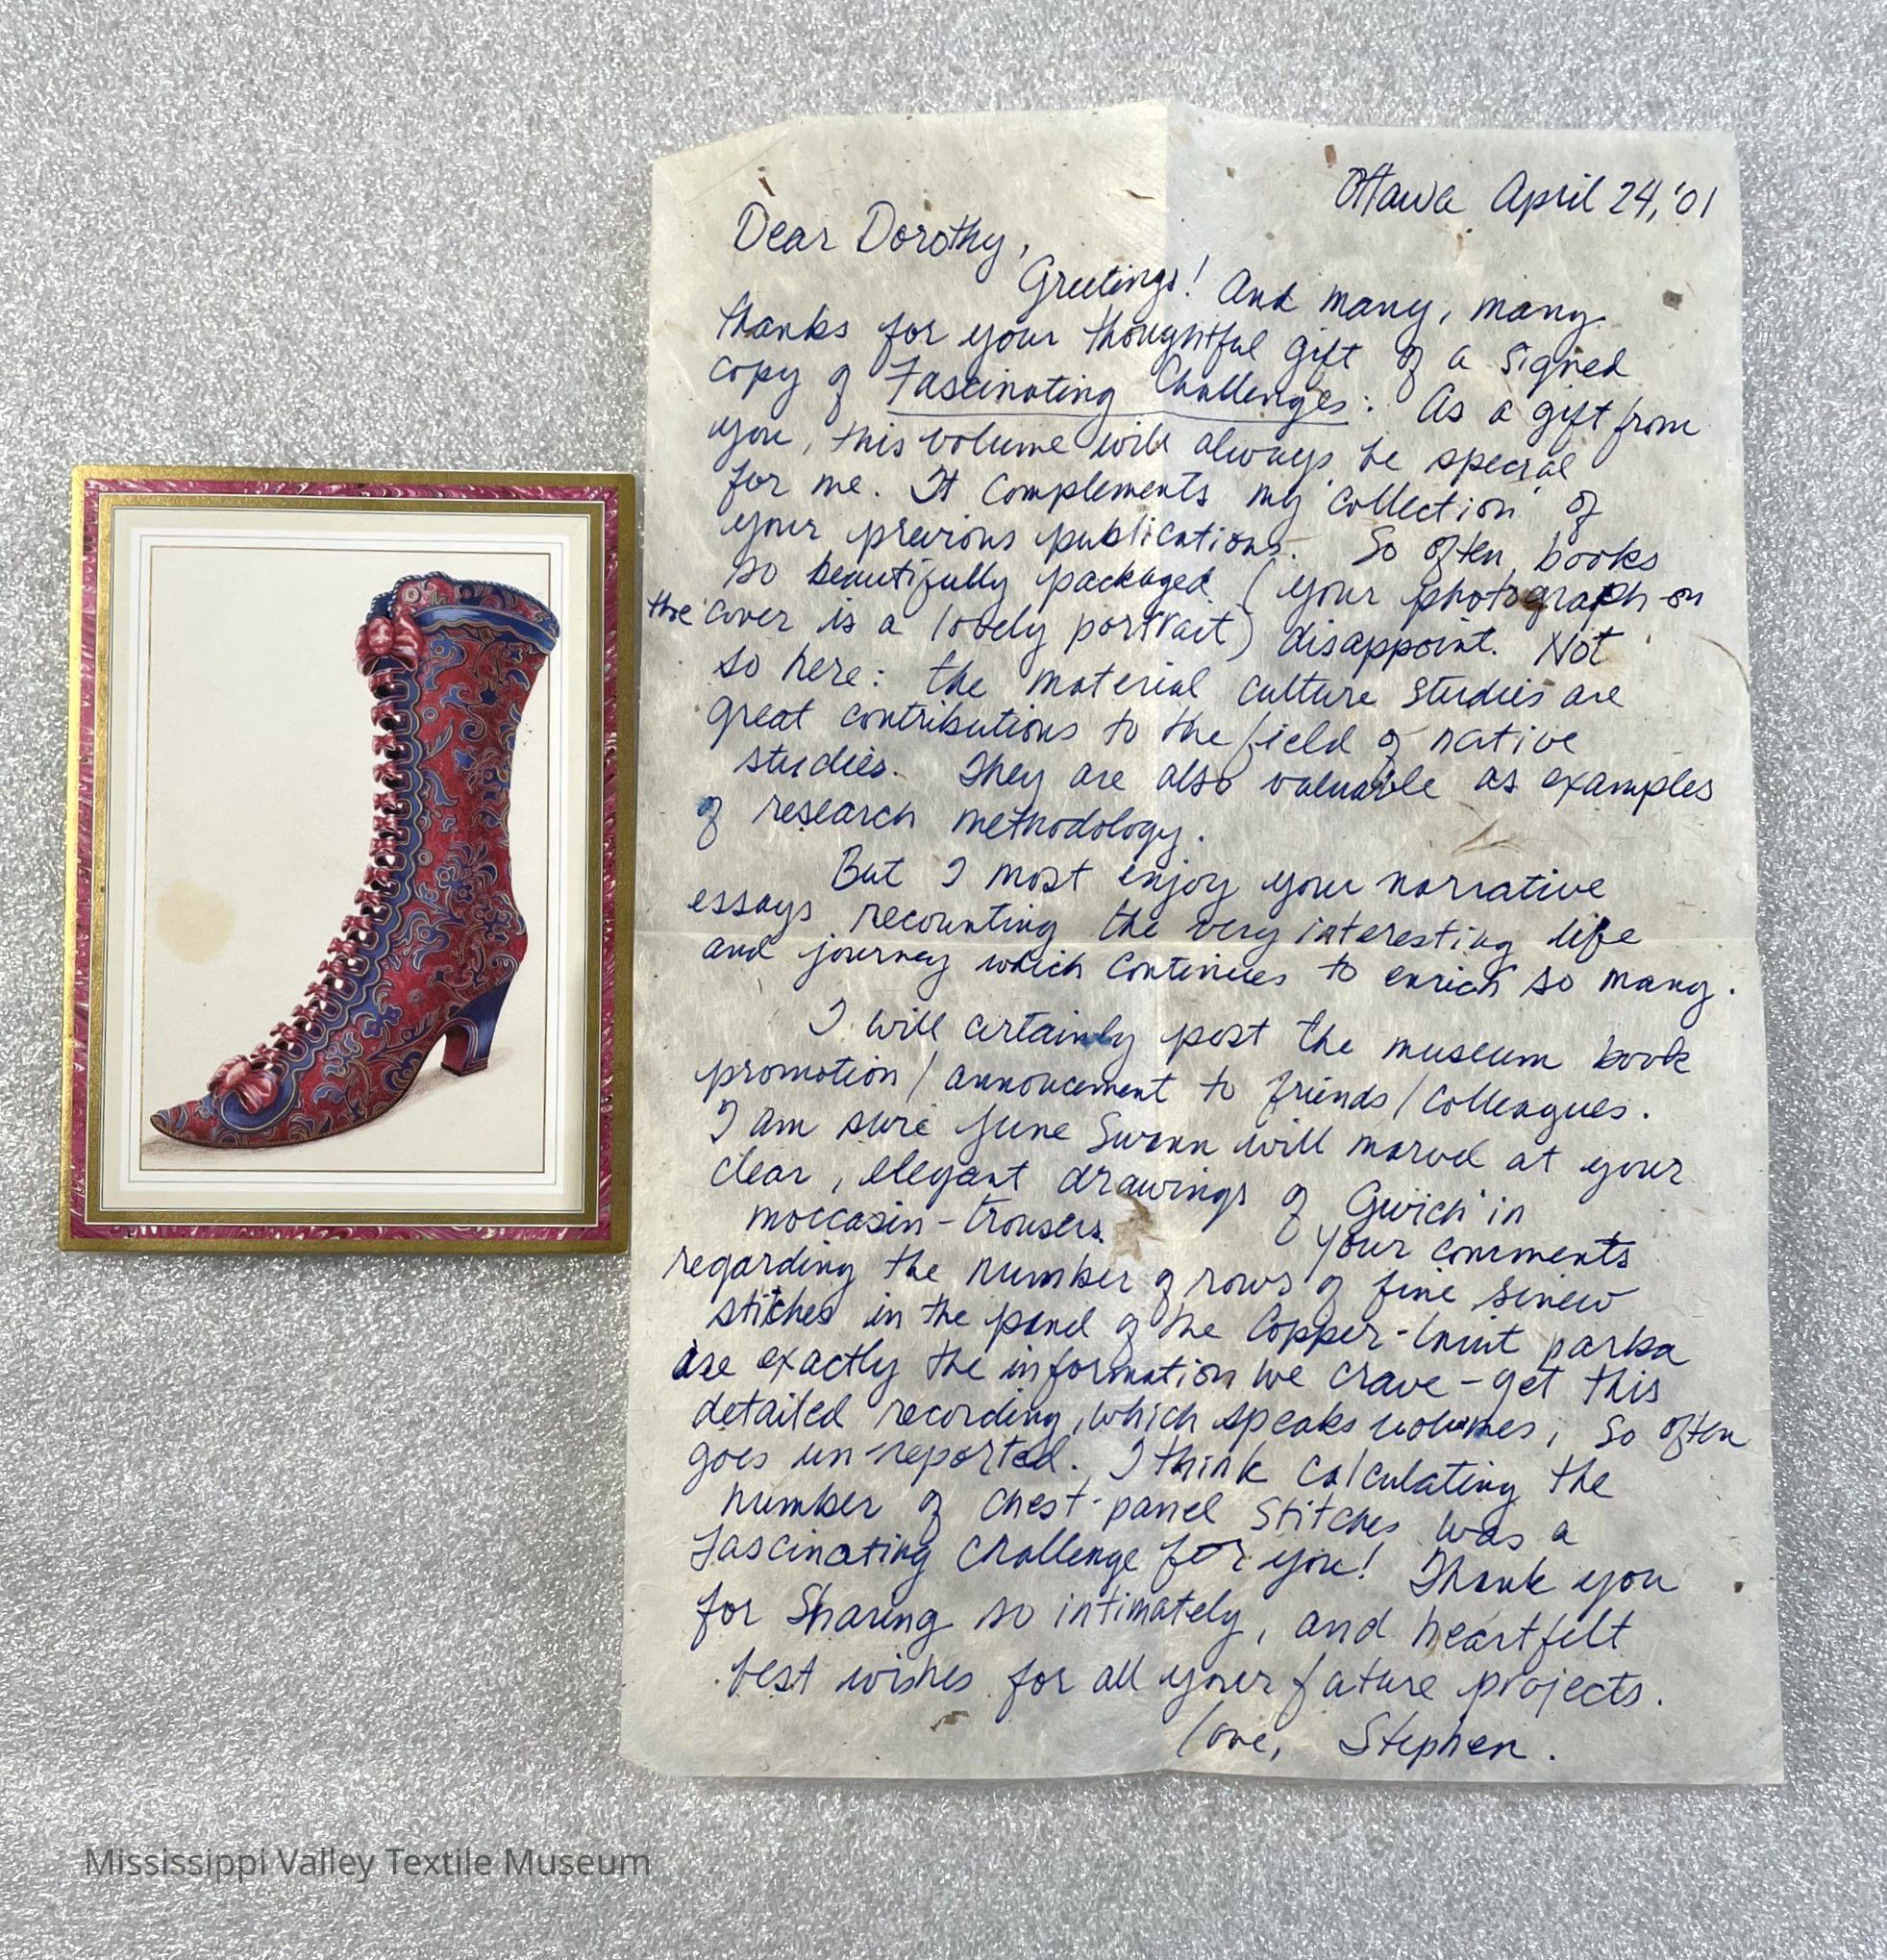 Ottawa April 24, '01
Dear Dorothy,
Greetings! And many, many
thanks for your thoughtful gift of a signed
copy of Fascinating Challenges: As a gift from
you, this volume will always be special
for me. It complements my 'collection' of
your previous publications. So often, books
so beautifully packaged (your photograph on
the cover is a lovely portrait) disappoint. Not
so here: the material culture studies are
great contributions to the field of native
studies. They are also valuable as examples
of research methodology.
But I most enjoy your narrative
essays recounting the very interesting life
and journey which continues to enrich so many.
I will certainly post the museum book
promotion/annoucement to friends/colleagues.
I am sure June Swann will marvel at your
clear, elegant drawings of Gwich'in
moccasin-trousers. Your comments
regarding the number of rows of fine sinew
stitches in the panel of the Copper-Inuit parka
are exactly the information we crave - yet this
detailed recording, which speaks volumes, so often
goes un-reported. I think calculating the
number of chest-panel stitches was a
fascinating challenge for you! Thank you
for sharing so intimately, and heartfelt
best wishes for all your future projects.
love, Stephen.
Mississippi Valley Textile Museum